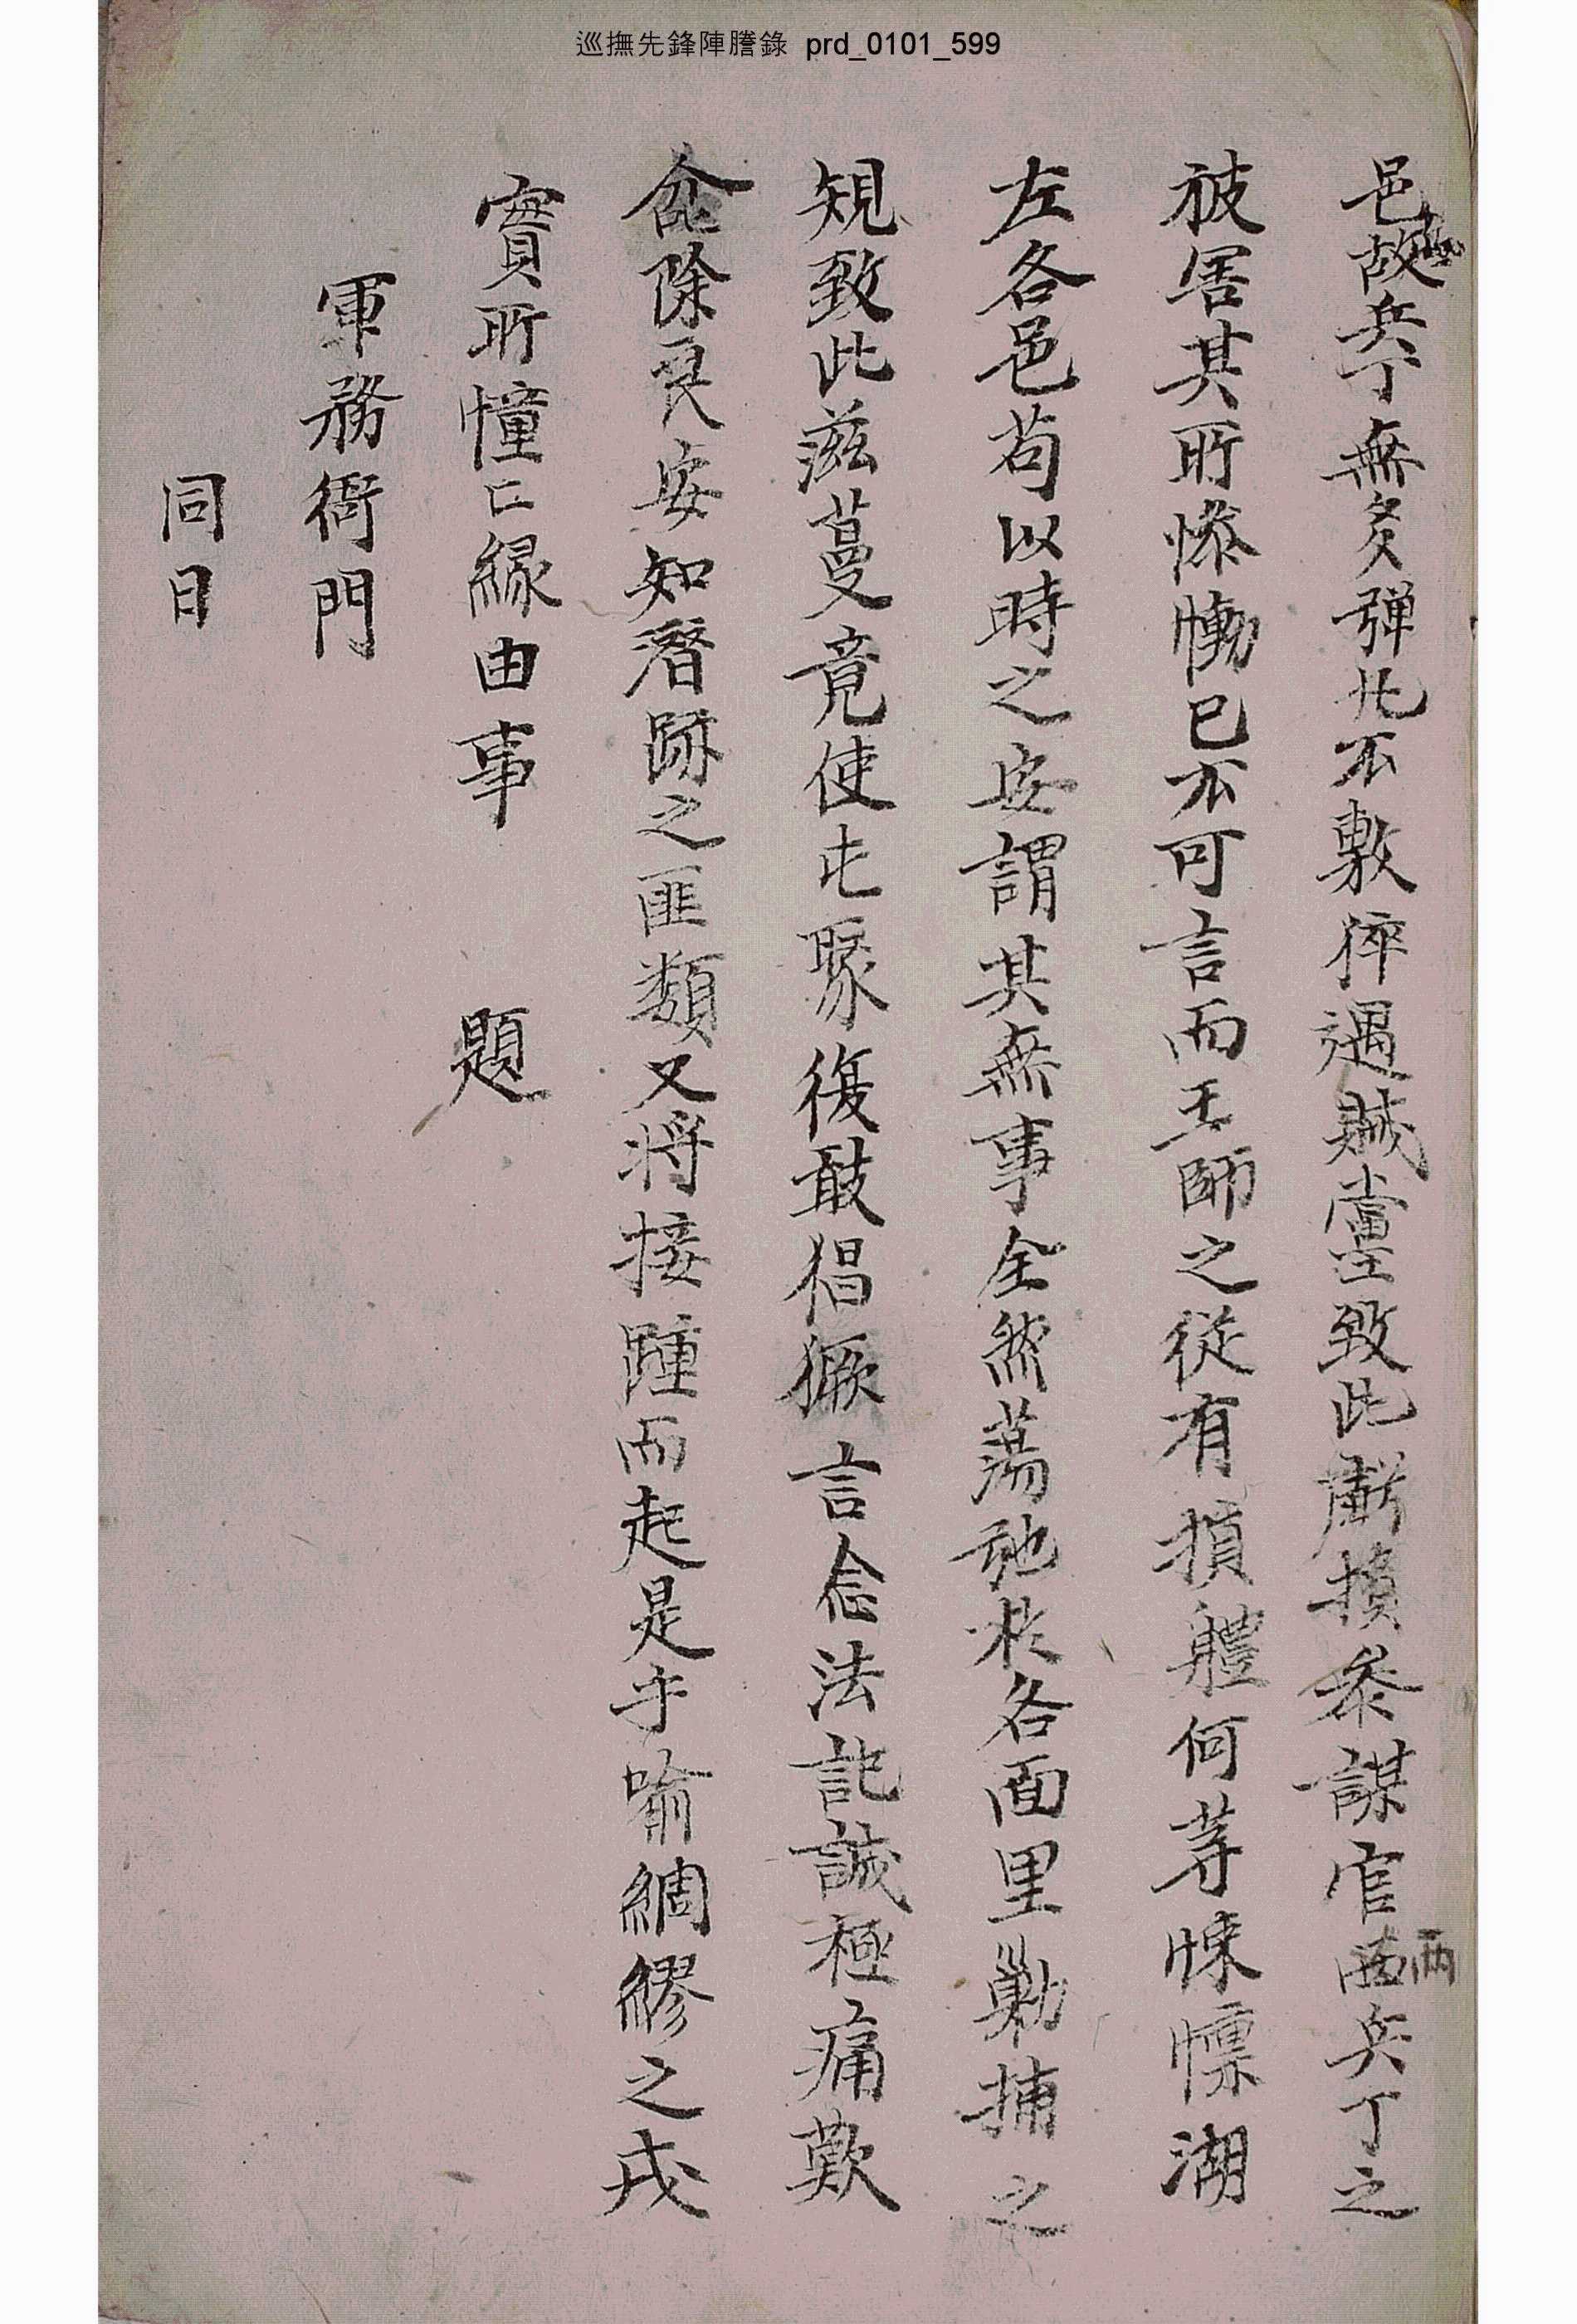 巡撫先鋒陣謄錄 prd_0101_599
邑故兵丁無多彈壓不敷猝遇賊黨致此虧損叅謀官兩兵丁之
被害其所慘慟已不可言而王師之從有損軆何等悚懍湖
左各邑苟以時之安謂其無事全然蕩弛於各面里勦捕之
規致此滋蔓竟使屯聚復敢猖獗言念法記誠極痛歎
除良安知潛跡之匪類又將接踵而起是乎喩綢繆之戎
實所憧亡緣由事 題
軍務衙門
同日